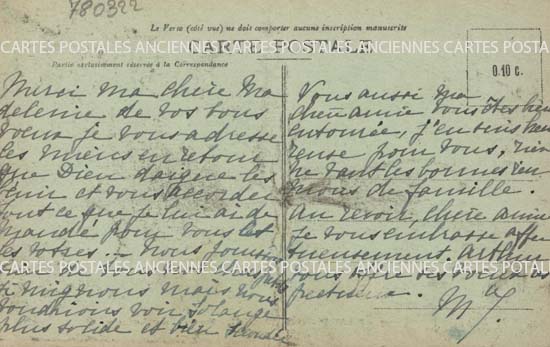 780322
Le Verso (côté vue) ne doit comporter aucune inscription manuscrite
CARTES POSTALES ANCIENNES CARTES POSTALES ANCIENNES CARTES POSTALES
CARTE POSTALE
Partie exclusivement réservée à la Correspondance
0.10 c.
Merci ma chère Ma
deleine de vos bons
voeux je vous adresse
les miens en retour
que Dieu daigne les
bénir et vous accorder
tout ce que je lui ai de
mandé pour vous et
les vôtres - nous
si mignons mais nous
voudrions voir Solange
plus solide et bien
Vous aussi ma
chère amie vous êtes bien
entourée, j'en suis heu
reuse pour vous, rien
ne vaut les bonnes
de famille.
Au revoir, chère amie
je vous embrasse affec
tueusement
CARTES POSTALES ANCIENNES CARTES POSTALES ANCIENNES CARTES POSTALES